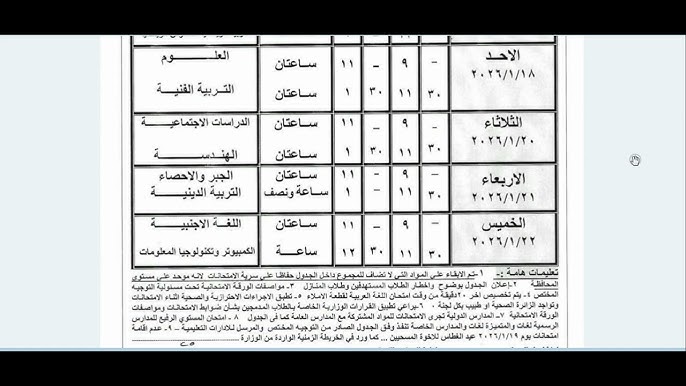 الاحد ٢٠٢٦/١/١٨
العلـــوم ساعتان ١١ – ٩ –
التربية الفنية ساعتان ١ ٣٠ ١١ ٣٠
الثلاثاء ٢٠٢٦/١/٢٠
الدراسات الاجتماعية ساعتان ١١ – ٩ –
الهندسة ساعتان ١ ٣٠ ١١ ٣٠
الاربعاء ٢٠٢٦/١/٢١
الجبر والاحصاء ساعتان ١١ – ٩ –
التربية الدينية ساعة ونصف ١ – ١١ ٣٠
الخميس ٢٠٢٦/١/٢٢
اللغة الاجنبية ساعتان ١١ – ٩ –
الكمبيوتر وتكنولوجيا المعلومات ساعة ١٢ ٣٠ ١١ ٣٠
تعليمات هامة :- ١-تم الابقاء على المواد التي لا تضاف للمجموع داخل الجدول حفاظا على سرية الامتحانات لانه موحد على مستوى
المحافظة ٢-إعلان الجدول بوضوح واخطار الطلاب المستهدفين وطلاب المنازل ٣- مواصفات الورقة الامتحانية تحت مسئولية التوجيه
المختص ٤- يتم تخصيص اخر ٢٠دقيقة من وقت امتحان اللغة العربية لقطعة الاملاء ٥- تطبق الاجراءات الاحترازية والصحية اثناء الامتحانات
وتواجد الزائرة الصحية او طبيب بكل لجنة ٦-يراعي تطبيق القرارات الوزارية الخاصة بالطلاب المدمجين بشأن ضوابط الامتحانات ومواصفات
الورقة الامتحانية ٧- المدارس الدولية تجرى الامتحانات للمواد المشتركة مع المدارس العامة كما فى الجدول ٨ - امتحان المستوي الرفيع للمدارس
الرسمية لغات والمتميزة لغات والمدارس الخاصة تنفذ وفق الجدول الصادر من التوجيه المختص والمرسل للادارات التعليمية – ٩- عدم اقامة
امتحانات يوم ٢٠٢٦/١/١٩ عيد الغطاس للاخوة المسحيين ... كما ورد في الخريطة الزمنية الواردة من الوزارة